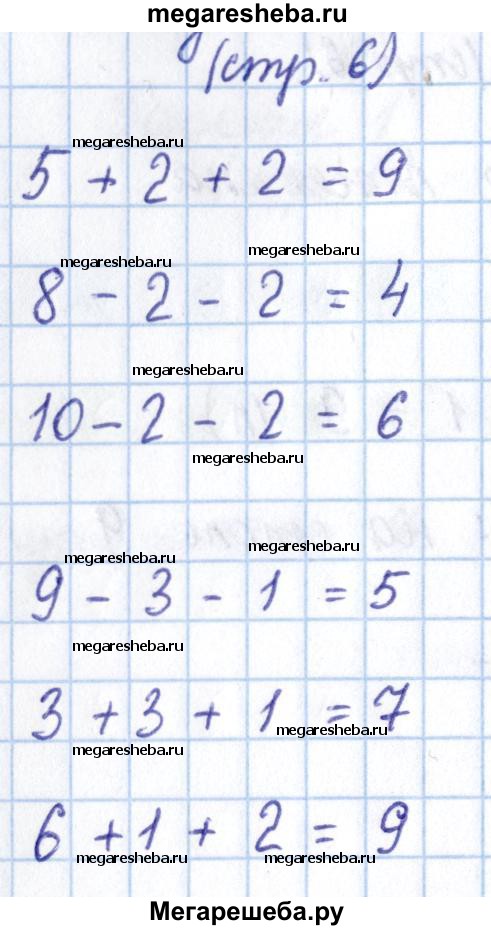 megaresheba.ru
(стр. 6)
megaresheba.ru
5 + 2 + 2 = 9
megaresheba.ru
megaresheba.ru
8 - 2 - 2 = 4
megaresheba.ru
10 - 2 - 2 = 6
megaresheba.ru
megaresheba.ru
megaresheba.ru
9 - 3 - 1 = 5
megaresheba.ru
3 + 3 + 1 = 7
megaresheba.ru
megaresheba.ru
6 + 1 + 2 = 9
megaresheba.ru megaresheba.ru
Мегарешеба.ру